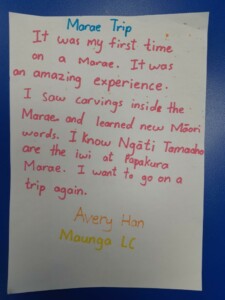 Marae Trip
It was my first time
on a Marae. It was
an amazing experience.
I saw carvings inside the
Marae and learned new Māori
words. I know Ngāti Tamaoho
are the iwi at Papakura
Marae. I want to go on a
trip again.
Avery Han
Maunga LC